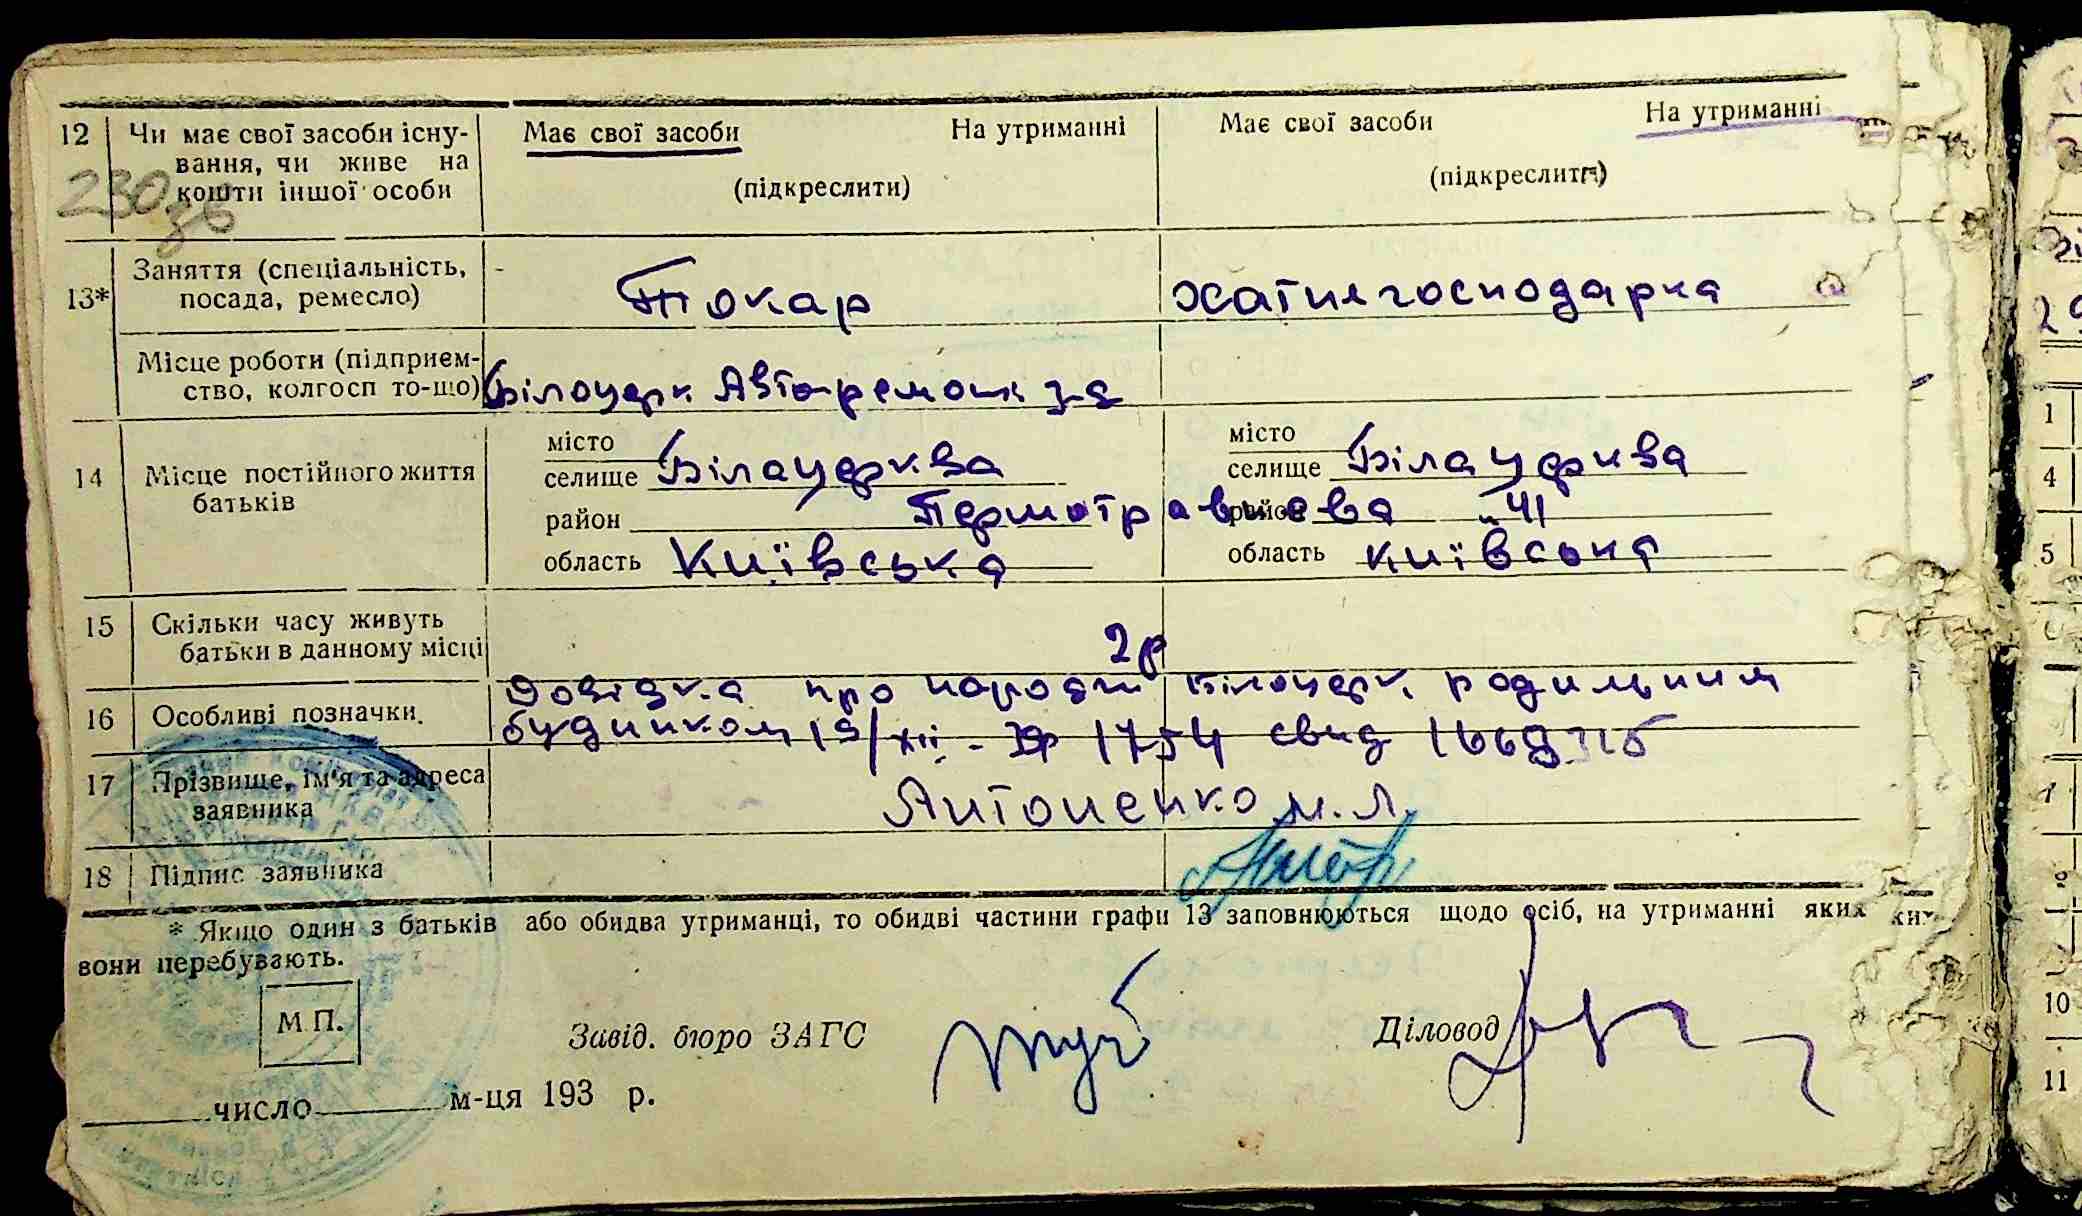 12 Чи має свої засоби існу- Має свої засоби На утриманні Має свої засоби На утриманні
вання, чи живе на
кошти іншої особи (підкреслити) (підкреслити)
230 зв
Заняття (спеціальність,
13* посада, ремесло) Токар хатнягосподарка
Місце роботи (підприєм-
ство, колгосп то-що) Білоцерк Авто-ремонт з-д
14 Місце постійного життя
батьків
місто
селище Білацерква
район Першотравнева 41
область Київська
місто
селище Білацерква
район
область Київська
15 Скільки часу живуть
батьки в данному місці 2р
16 Особливі позначки. Довідка про народж Білоцерк. родильним
будинком 19/XII - 1754 свид
17 Прізвище, ім'я та адреса
заявника Антоненко М. Л.
18 Підпис заявника
* Якщо один з батьків або обидва утриманці, то обидві частини графи 13 заповнюються щодо осіб, на утриманні яких
вони перебувають.
М.П.
Завід. бюро ЗАГС Діловод
число м-ця 193 р.
1
4
5
10
11